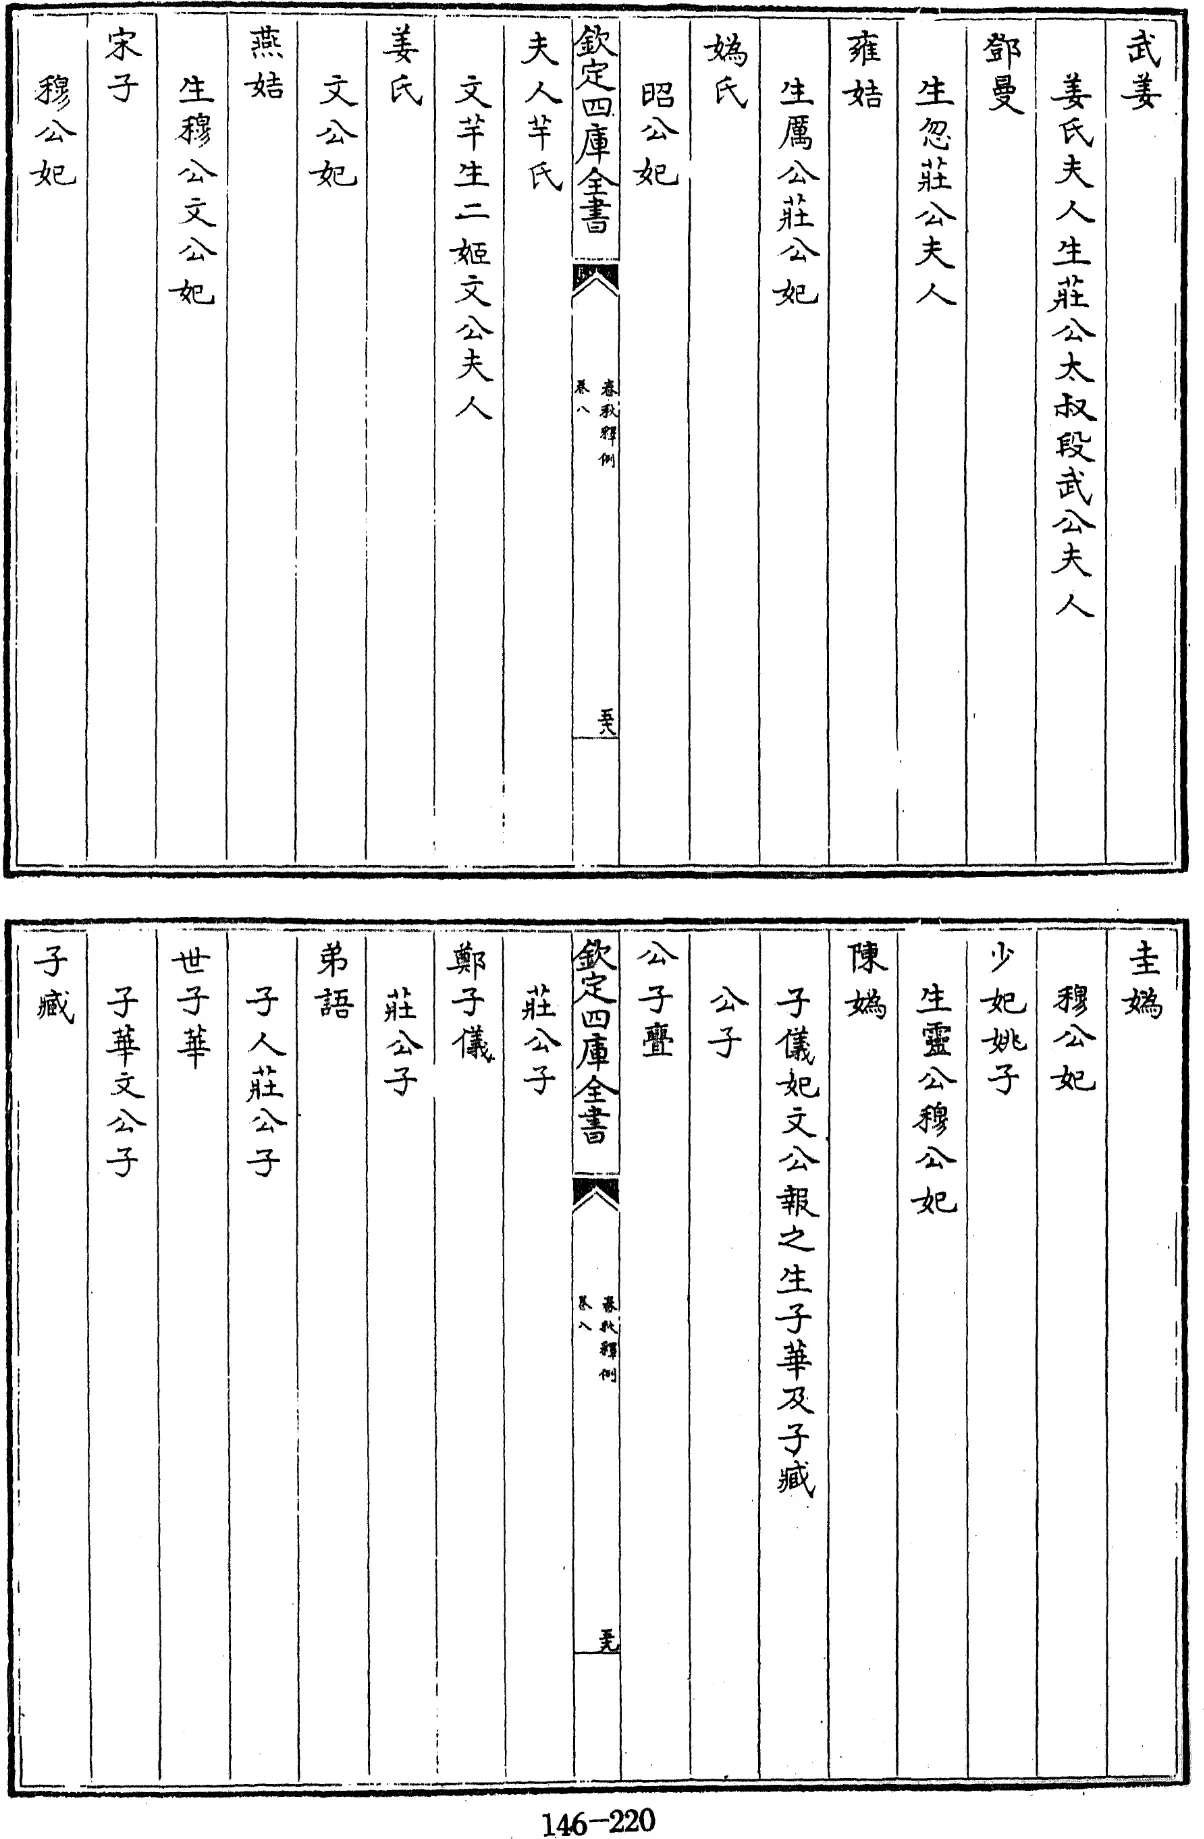 武姜
姜氏夫人生莊公太叔段武公夫人
鄧曼
生忽莊公夫人
雍姞
生厲公莊公妃
媯氏
昭公妃
欽定四庫全書
春秋釋例
卷八
五十八
夫人芊氏
文芊生二姬文公夫人
姜氏
文公妃
燕姞
生穆公文公妃
宋子
穆公妃
圭媯
穆公妃
少妃姚子
生靈公穆公妃
陳媯
子儀妃文公報之生子華及子臧
公子
公子亹
欽定四庫全書
春秋釋例
卷八
五十九
莊公子
鄭子儀
莊公子
弟語
子人莊公子
世子華
子華文公子
子臧
146-220